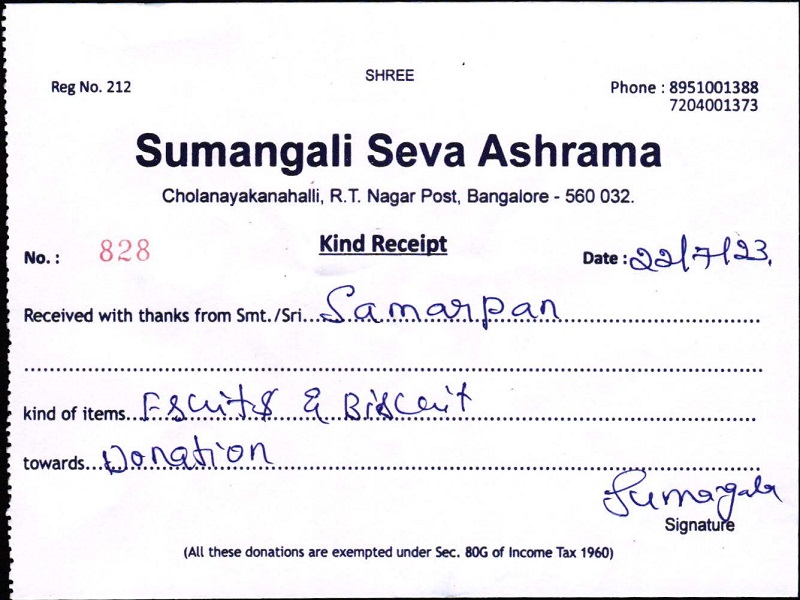 SHREE
Reg No. 212
Phone : 8951001388
7204001373
Sumangali Seva Ashrama
Cholanayakanahalli, R.T. Nagar Post, Bangalore - 560 032.
Kind Receipt
No. : 828
Date : 22/7/23.
Received with thanks from Smt./Sri...Samarpan
kind of items... & Biscuit
towards...Donation
Sumangala
Signature
(All these donations are exempted under Sec. 80G of Income Tax 1960)